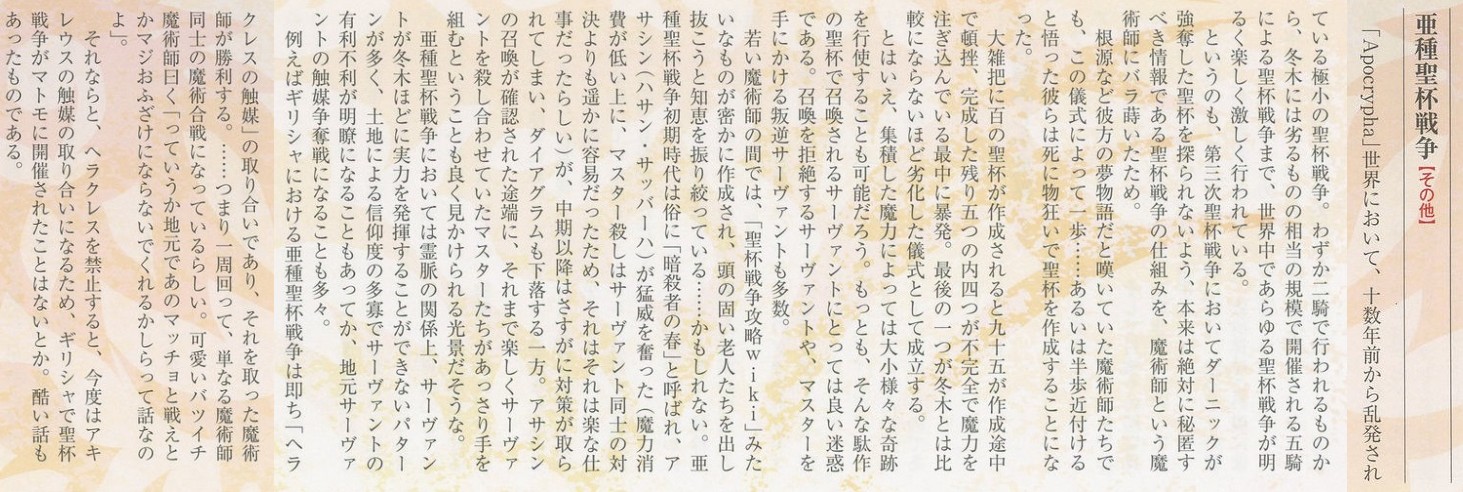 亜種聖杯戦争【その他】
「Apocrypha」世界において、十数年前から乱発され
ている極小の聖杯戦争。わずか二騎で行われるものか
ら、冬木には劣るものの相当の規模で開催される五騎
による聖杯戦争まで、世界中であらゆる聖杯戦争が明
るく楽しく激しく行われている。
というのも、第三次聖杯戦争においてダーニックが
強奪した聖杯を探られないよう、本来は絶対に秘匿す
べき情報である聖杯戦争の仕組みを、魔術師という魔
術師にバラ蒔いたため。
根源など彼方の夢物語だと嘆いていた魔術師たちで
も、この儀式によって一歩……あるいは半歩近付ける
と悟った彼らは死に物狂いで聖杯を作成することにな
った。
大雑把に百の聖杯が作成されると九十五が作成途中
で頓挫、完成した残り五つの内四つが不完全で魔力を
注ぎ込んでいる最中に暴発。最後の一つが冬木とは比
較にならないほど劣化した儀式として成立する。
とはいえ、集積した魔力によっては大小様々な奇跡
を行使することも可能だろう。もっとも、そんな駄作
の聖杯で召喚されるサーヴァントにとっては良い迷惑
である。召喚を拒絶するサーヴァントや、マスターを
手にかける叛逆サーヴァントも多数。
若い魔術師の間では、「聖杯戦争攻略ｗｉｋｉ」みた
いなものが密かに作成され、頭の固い老人たちを出し
抜こうと知恵を振り絞っている……かもしれない。亜
種聖杯戦争初期時代は俗に「暗殺者の春」と呼ばれ、ア
サシン（ハサン・サッバーハ）が猛威を奮った（魔力消
費が低い上に、マスター殺しはサーヴァント同士の対
決よりも遥かに容易だったため、それはそれは楽な仕
事だったらしい）が、中期以降はさすがに対策が取ら
れてしまい、ダイアグラムも下落する一方。アサシン
の召喚が確認された途端に、それまで楽しくサーヴァ
ントを殺し合わせていたマスターたちがあっさり手を
組むということも良く見かけられる光景だそうな。
亜種聖杯戦争においては霊脈の関係上、サーヴァン
トが冬木ほどに実力を発揮することができないパター
ンが多く、土地による信仰度の多寡でサーヴァントの
有利不利が明瞭になることもあってか、地元サーヴァ
ントの触媒争奪戦になることも多々。
例えばギリシャにおける亜種聖杯戦争は即ち「ヘラ
クレスの触媒」の取り合いであり、それを取った魔術
師が勝利する。……つまり一周回って、単なる魔術師
同士の魔術合戦になっているらしい。可愛いバツイチ
魔術師曰く「っていうか地元であのマッチョと戦えと
かマジおふざけにならないでくれるかしらって話なの
よ」。
それならばと、ヘラクレスを禁止すると、今度はアキ
レウスの触媒の取り合いになるため、ギリシャで聖杯
戦争がマトモに開催されたことはないとか。酷い話も
あったものである。